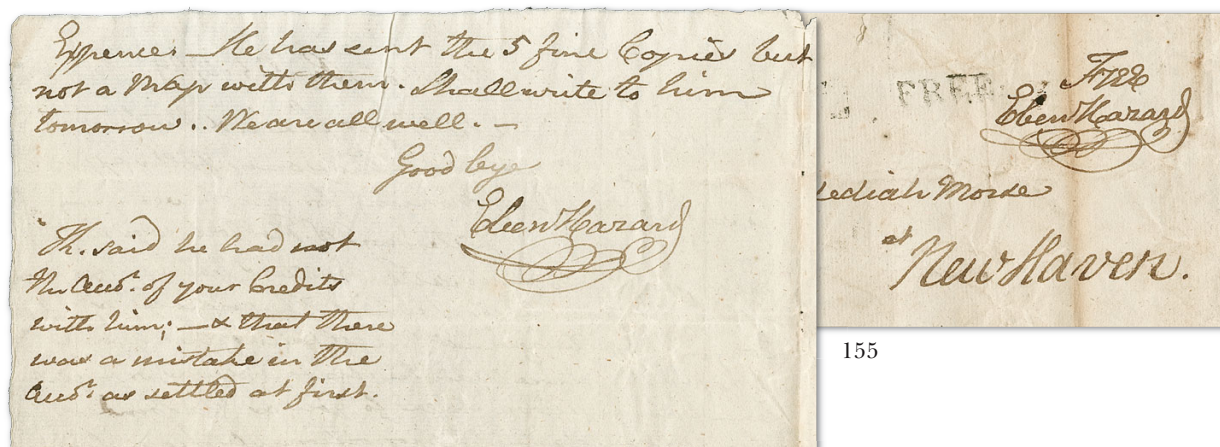 Expence. — He has sent the 5 fine Copies but
not a Map with them. Shall write to him
tomorrow.. We are all well. —
Good bye
Eben Hazard
Th. said he had not
the Acco.t of your Credits
with him; — & that there
was a mistake in the
Acco.t as settled at first.
FREE
Free
Eben Hazard
dediah Morse
at
New Haven.
155